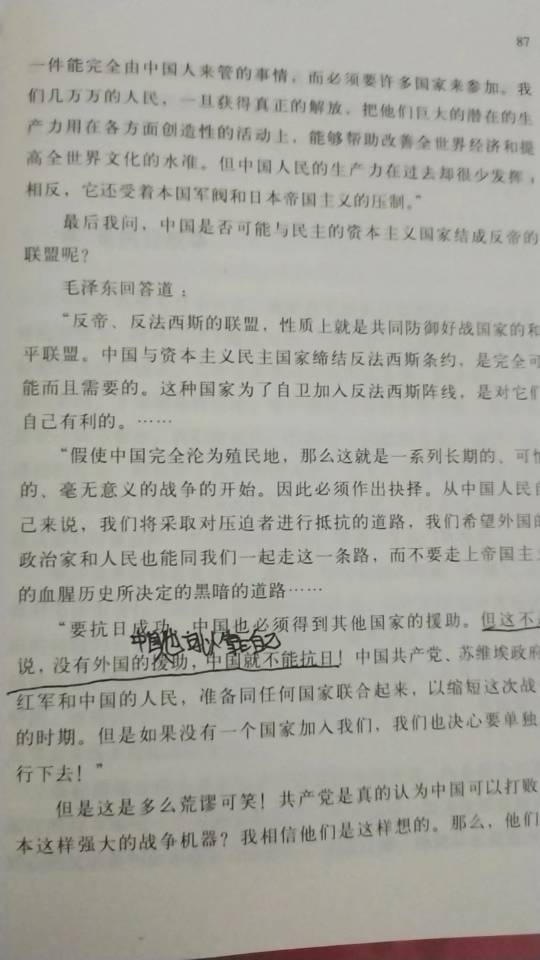 87
一件能完全由中国人来管的事情，而必须要许多国家来参加。我
们几万万的人民，一旦获得真正的解放，把他们巨大的潜在的生
产力用在各方面创造性的活动上，能够帮助改善全世界经济和提
高全世界文化的水准。但中国人民的生产力在过去却很少发挥，
相反，它还受着本国军阀和日本帝国主义的压制。”
最后我问，中国是否可能与民主的资本主义国家结成反帝的
联盟呢？
毛泽东回答道：
“反帝、反法西斯的联盟，性质上就是共同防御好战国家的和
平联盟。中国与资本主义民主国家缔结反法西斯条约，是完全可
能而且需要的。这种国家为了自卫加入反法西斯阵线，是对它们
自己有利的。……
“假使中国完全沦为殖民地，那么这就是一系列长期的、可怕
的、毫无意义的战争的开始。因此必须作出抉择。从中国人民自
己来说，我们将采取对压迫者进行抵抗的道路，我们希望外国的
政治家和人民也能同我们一起走这一条路，而不要走上帝国主义
的血腥历史所决定的黑暗的道路……
“要抗日成功，中国也必须得到其他国家的援助。但这不是
中国也可以靠自己
说，没有外国的援助，中国就不能抗日！中国共产党、苏维埃政府
红军和中国的人民，准备同任何国家联合起来，以缩短这次战
的时期。但是如果没有一个国家加入我们，我们也决心要单独
行下去！”
但是这是多么荒谬可笑！共产党是真的认为中国可以打败
本这样强大的战争机器？我相信他们是这样想的。那么，他们